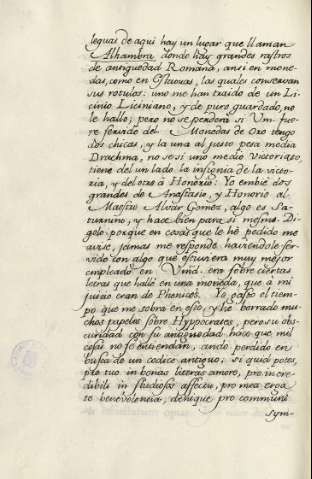 leguas de aqui hay un lugar que llaman
Alhambra donde hay grandes rastros
de antiguedad Romana, ansi en mone-
das, como en Estatuas, las quales conservan
sus rotulos: uno me han traido de un Li-
cinio Liciniano, y de puro guardado, no
le hallo; pero no se perderá si Vm. fue-
re servido del Monedas de Oro tengo
dos chicas, y la una al justo pesa media
Drachma, no se si uno medio Victoriato,
tiene del un lado la insignia de la victo-
ria, y del otro à Honorio: Yo embié dos
grandes de Anastasio, y Honorio al
Maestro Alvar Gomez, algo es Sa-
turnino, y hace bien para si mesmo. Di-
golo porque en cosas que le hé pedido me
avise, jamas me responde haviendole ser-
vido con algo que estuviera muy mejor
empleado en Vmd. era sobre ciertas
letras que hallé en una moneda, que à mi
juicio eran de Phenices. Yo gasto el tiem-
po que me sobra en esto, y hé borrado mu-
chos papeles sobre Hyppocrates, pero su obs-
curidad con su antiguedad hace que mil
cosas no se entiendan, ando perdido en
busca de un codice antiguo; si quid potes,
pro tuo in bonas literas amore, pro incre-
dibili in studiosos affectu, pro mea erga
te benevolencia, denique pro communi
sym-